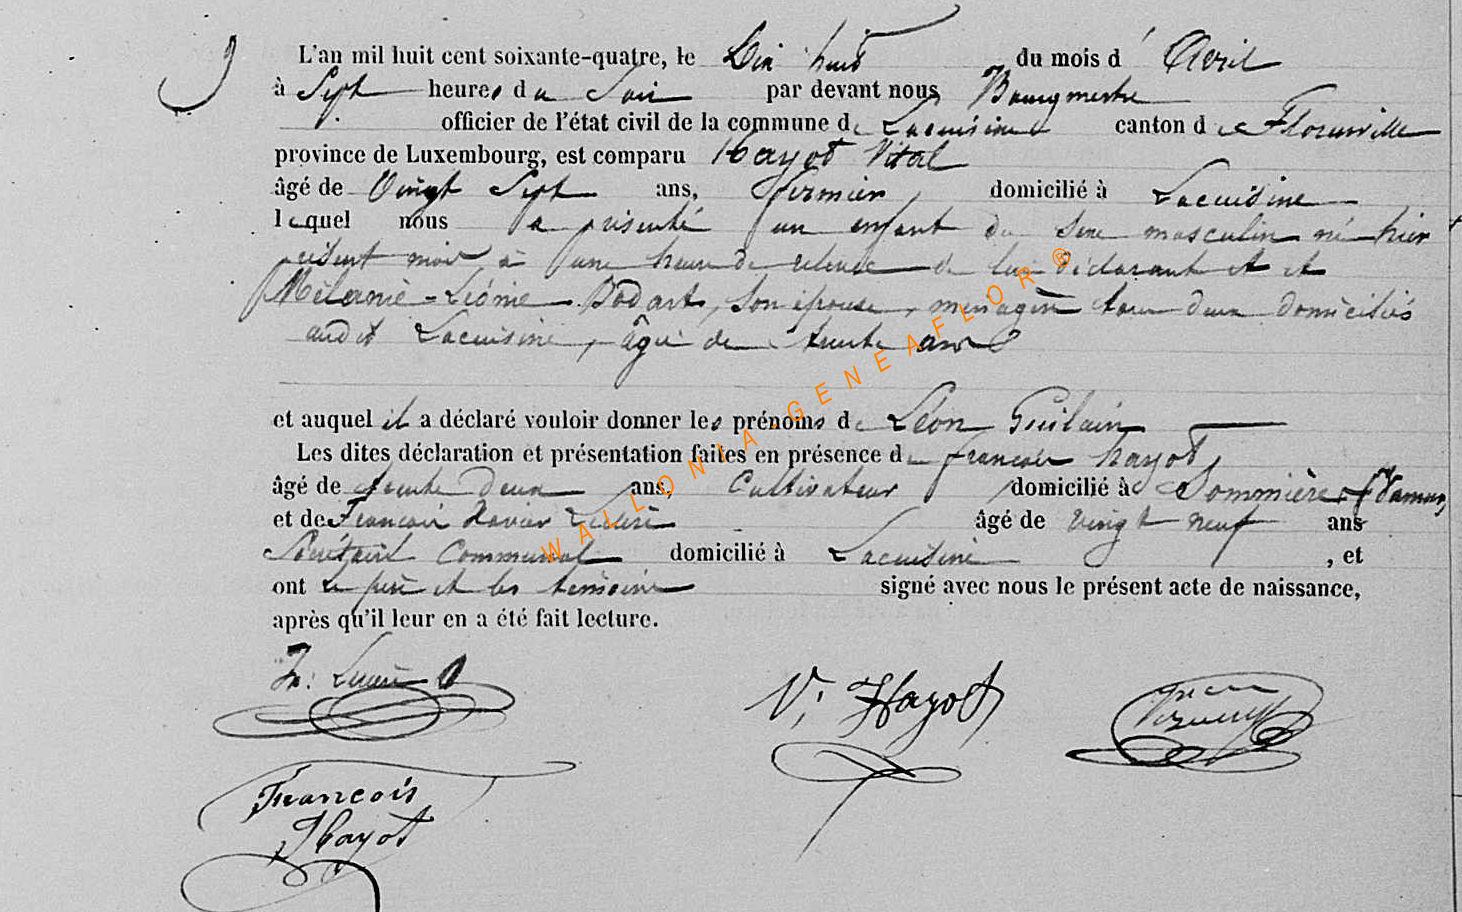 L'an mil huit cent soixante-quatre, le Dix huit du mois d' Avril
à Sept heures du Soir par devant nous Bourgmestre
officier de l'état civil de la commune de Lacuisine canton de Florenville
province de Luxembourg, est comparu Hayot Vital
âgé de Vingt Sept ans, fermier, domicilié à Lacuisine
lequel nous a présenté un enfant du sexe masculin né hier
présent mois à une heure de relevée de lui déclarant et et
Mélanie-Léonie Dodart, son épouse, ménagère tous deux domiciliés
audit Lacuisine, âgée de trente ans
et auquel il a déclaré vouloir donner les prénoms de Léon Guilain
Les dites déclaration et présentation faites en présence de françois hayot
âgé de trente deux ans, Cultivateur domicilié à Sommière (Namur)
et de François Xavier âgé de vingt neuf ans
Secrétaire Communal domicilié à Lacuisine , et
ont le père et les témoins signé avec nous le présent acte de naissance,
après qu'il leur en a été fait lecture.
V. Hayot
François
Hayot
WALLONIA-GENEAFLOR®